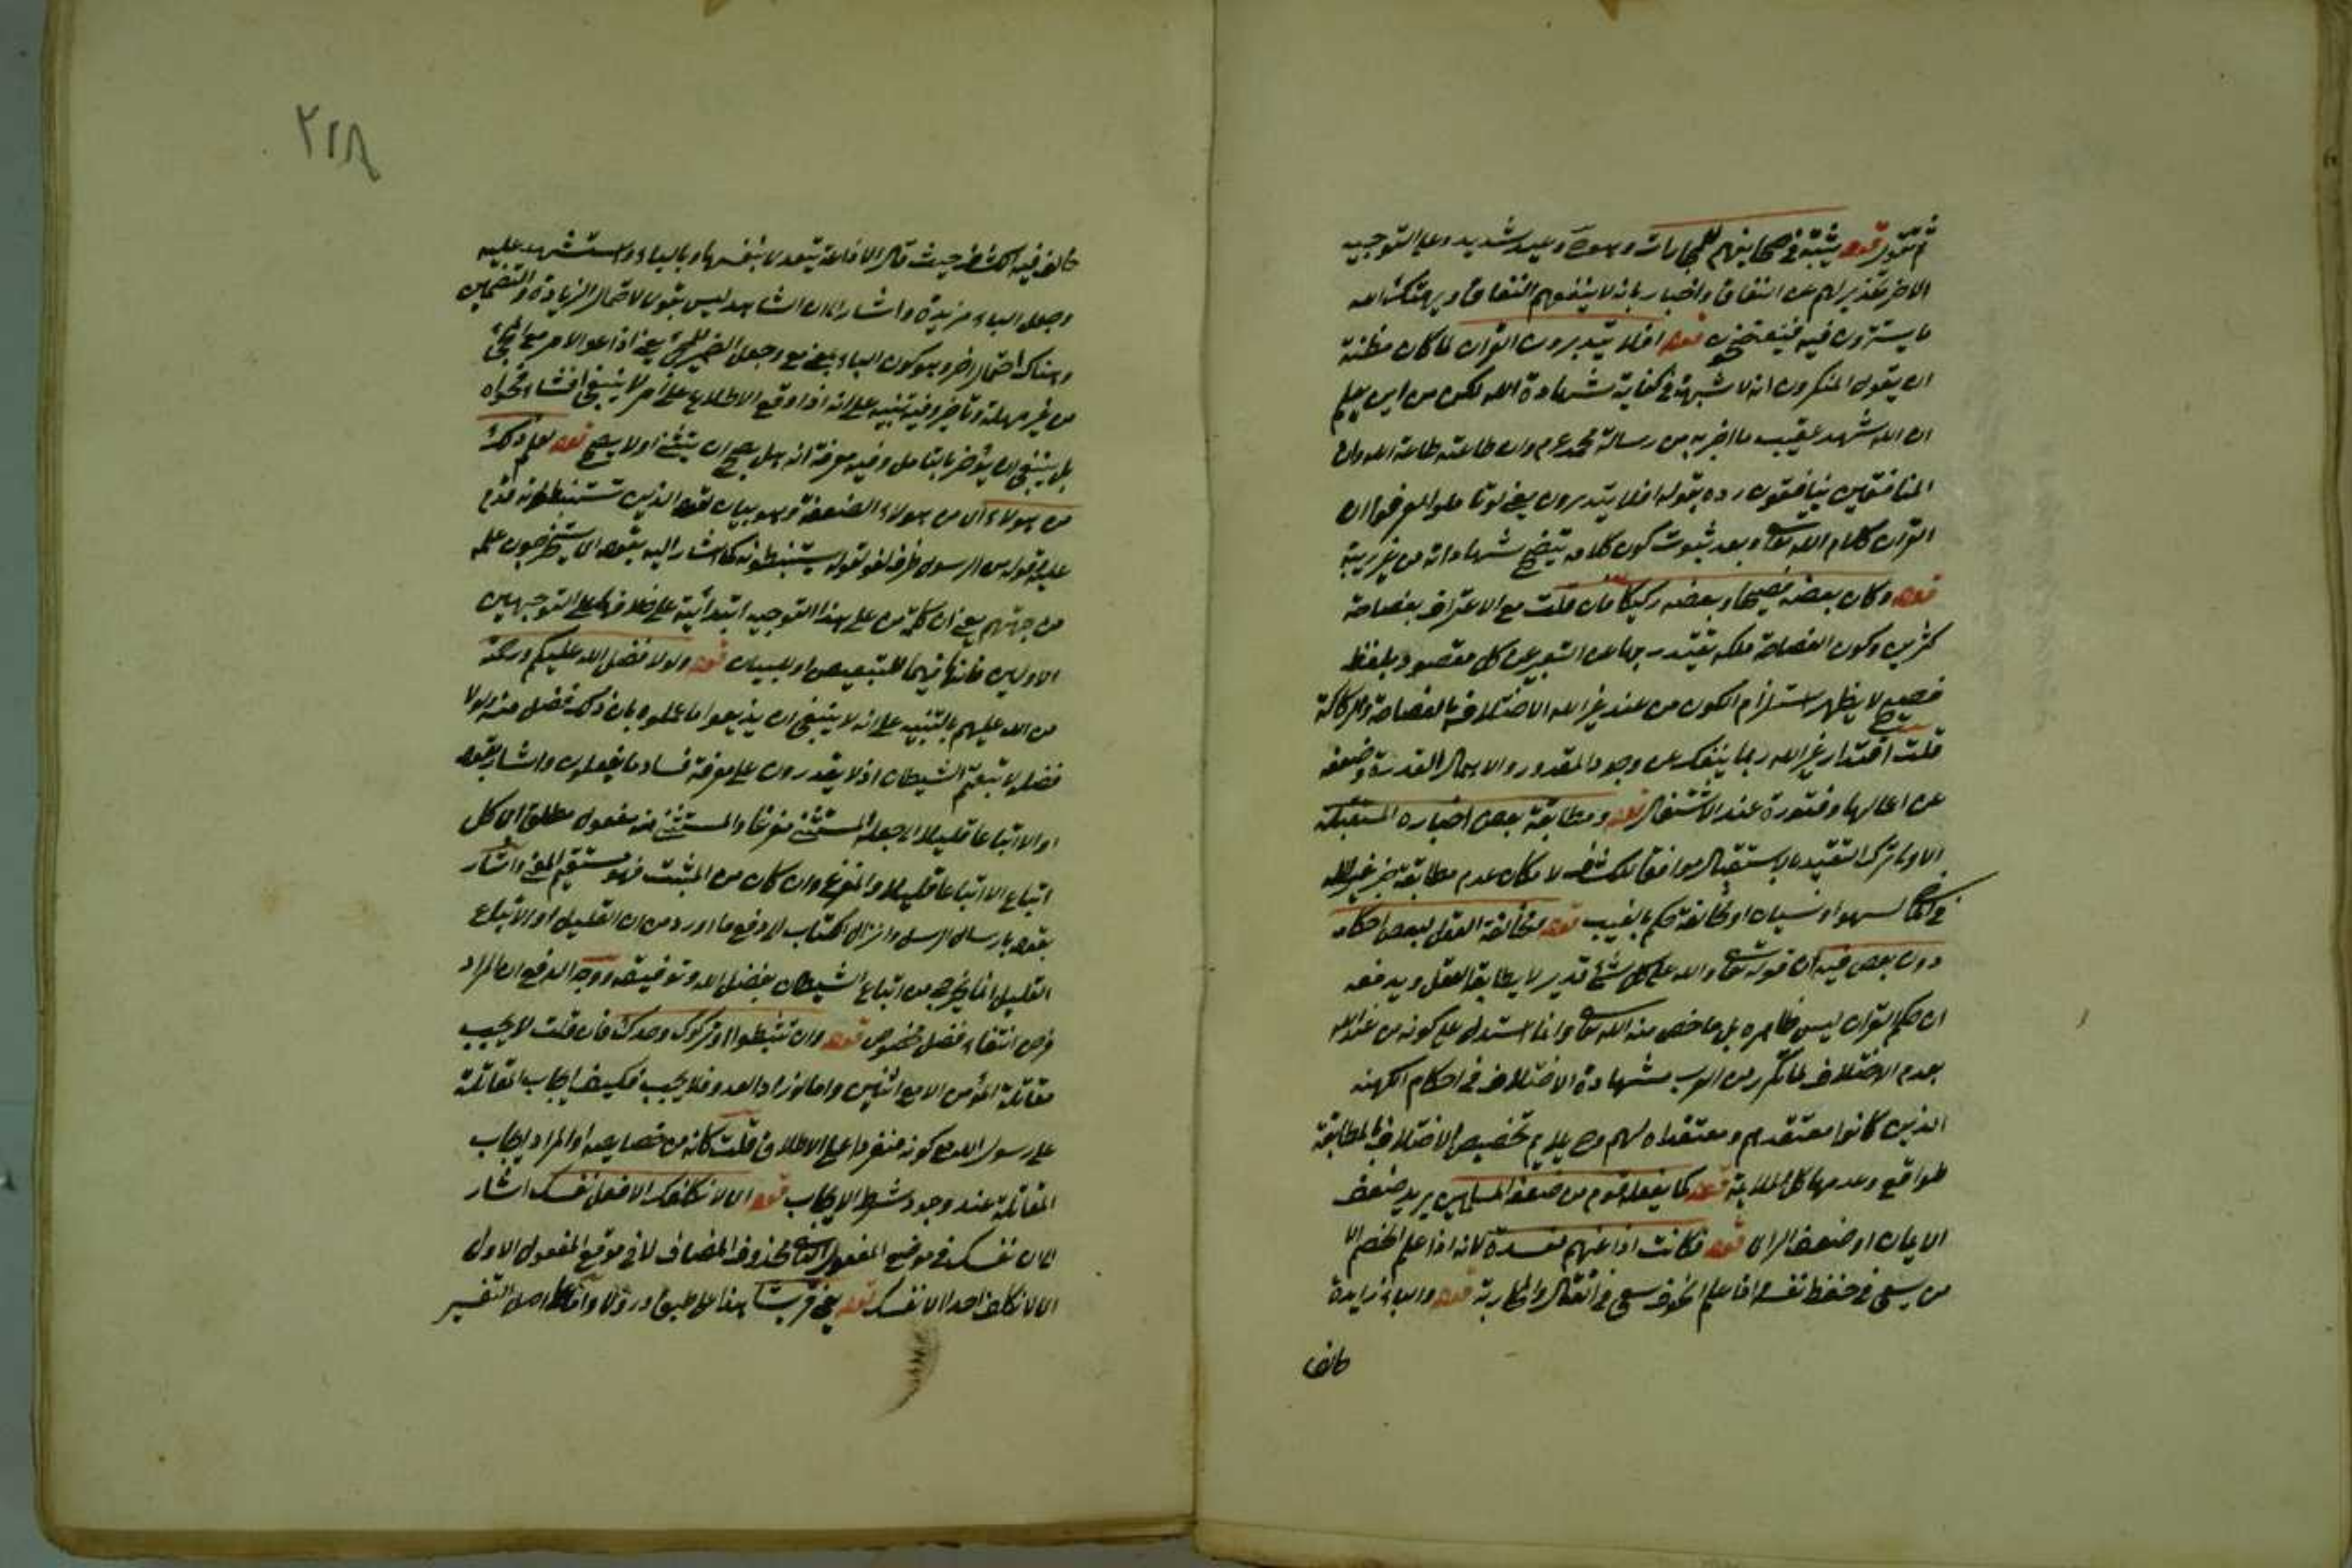 ثم تقرر قوله يثبته في صحايفهم للمجازات وهو وعيد شديد وعلى التوجيه
الاخر تحذير لهم عن النفاق واخبار بانه لا ينفعهم النفاق ويهتك الله
ما يسترون فيه فيفتضحون قوله افلا يتدبرون القران لما كان مظنة
ان يقول المنكرون انه لا شبهة في كفاية شهادة الله لكن من اين يعلم
ان الله شهد عقيب ما اخبر به من رسالة محمد عم وان طاعته طاعة الله وان
المنافقين ينافقون رده بقوله افلا يتدبرون يعني لو تاملوا لعرفوا ان
القران كلام الله تعالى وبعد ثبوت كون كلامه يتضح شهاداته من غير ريبة
قوله وكان بعضه فصيحا وبعضه ركيكا فان قلت مع الاعتراف بفصاحة
كثيرين وكون الفصاحة ملكة يقتدر بها عن التعبير عن كل مقصود بلفظ
فصيح لا يظهر استلزام الكون من عند غير الله الاختلاف بالفصاحة والركاكة
قلت اقتدار غير الله ربما ينفك عن وجود المقدور والاهمال القدرة وضعفه
عن اعمالها وفتوره عند الاشتغال قوله ومطابقة بعض اخباره المستقبلة
الاولى ترك التقييد بالاستقبال موافقا للكشاف لامكان عدم مطابقة خبر غير الله
في الماضي لسهو او نسيان او مخالفة حكم بالغيب قوله وموافقة العقل لبعض احكامه
دون بعض فيه ان قوله تعالى والله على كل شئ قدير لا يطابقه العقل ويدفعه
ان حكم القران ليس ظاهره بل ما خص منه الله تعالى وانما استدل على كونه من عند الله
بعدم الاختلاف لما تكرر من العرب مشهادة الاختلاف في احكام الكهنه
الذين كانوا معتقدهم ومعتقداه لهم وح يلايم تخصيص الاختلاف بالمطابقة
للواقع وعدمها كل الملايمة قوله كما يفعله قوم من ضعفة المسلمين يريد ضعف
الايمان او ضعف الراى قوله فكانت اذاعتهم مفسدة لانه اذا علم الخصم الامن
من يسعى في حفظ نفسه واذا علم الخوف سعى في القتال والمحاربة قوله والباء زايدة
خالف
٢٢٨
خالف فيه الكشاف حيث قال الاذاعة يتعدى بنفسها وبالباء واستشهد عليه
وجعل الباء مزيدة واشار الى ان الشاهد ليس بقوى لاحتمال الزيادة والتضمين
وهناك احتمال اخر وهو كون الباء بمعنى مع وجعل الضمير للمجئ يعنى اذاعوا الامر مع المجئ
من غير مهلة وتاخير وفيه تنبيه على انه اذا وقع الاطلاع على امر لا ينبغي افشاء فحواه
بل ينبغي ان يؤخر بالتامل وفيه معرفة انه هل يصح ان يفشى او لا يصح قوله لعلم ذلك
من هولاء اى من هولاء الضعفة وهو بيان لقوله الذين تستنبطونه قدم
عليه وقوله من الرسول ظرف لغو لقوله يستنبطونه كما اشار اليه بقوله اى يستخرجون علمه
من جهتهم يعنى ان كلمة من على هذا التوجيه ابتدائية على خلافها على التوجيهين
الاولين فانها فيهما للتبعيض او للبيان قوله ولولا فضل الله عليكم ورحمته
من الله عليهم بالتنبيه على انه لا ينبغي ان يذيعوا ما علموه بان ذلك فضل منه ولولا
فضله لاتبعتم الشيطان اذ لا يقدرون على معرفة فساد ما يفعلون واشار بقوله
او الا اتباعا قليلا الى جعله المستثنى مفرغا والمستثنى منه مفعول مطلق اى كل
اتباع الا اتباعا قليلا والمفرغ وان كان من المثبت فهو مستقيم المعنى واشار
بقوله بارسال الرسل وانزال الكتاب الى دفع ما اورد من ان القليل او الاتباع
القليل انما يخرج من اتباع الشيطان بفضل الله وتوفيقه ووجه الدفع ان المراد
فرض انتفاء فضل مخصوص قوله وان تثبطوا او تركوك وحدك فان قلت لا يجب
مقاتلة المؤمن الا مع اثنين واما لو زاد العدو فلا يجب فكيف ايجاب المقاتلة
على رسول الله مع كونه منفردا على الاطلاق قلت كانه من خصايصه او المراد ايجاب
المقاتلة عند وجود شرط الايجاب قوله اى لا نكلفك الا فعل نفسك اشار
الى ان نفسك في موضع المفعول الثاني محذوف المضاف لا في موقع المفعول الاول
اى لا نكلف احدا الا نفسك قوله يعنى قريشا هذا على طبق ما روى اولا واما على اصل التفسير